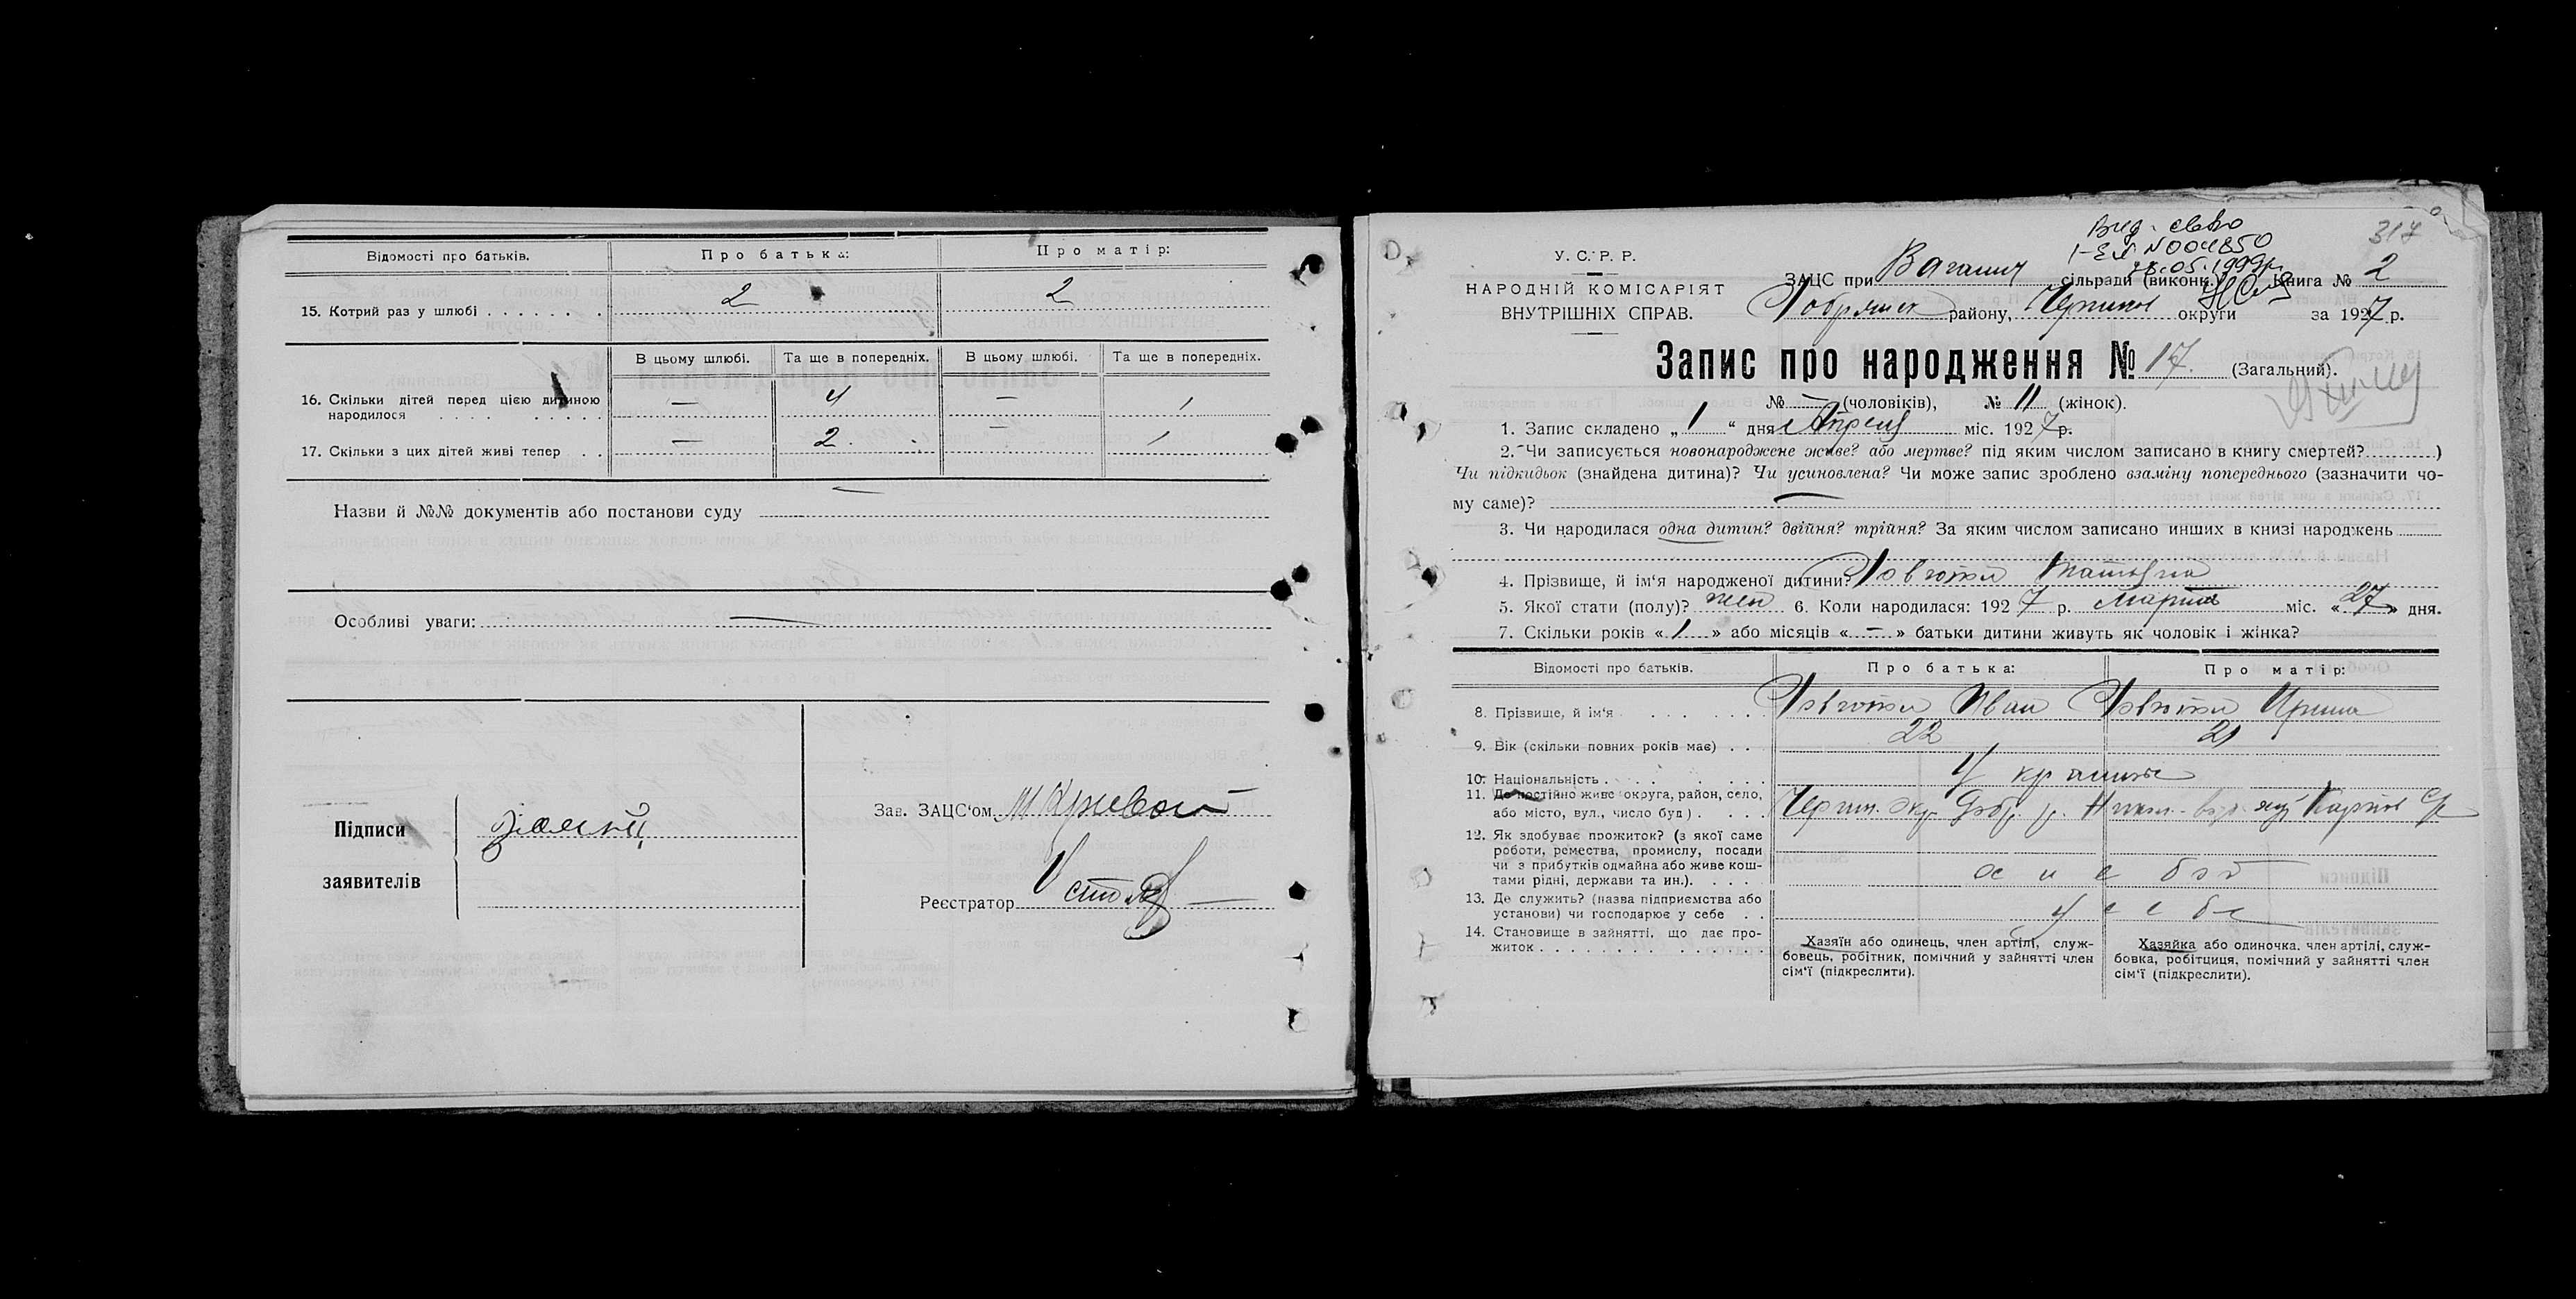 Відомості про батьків. Про батька: Про матір:
15. Котрий раз у шлюбі . . . . . . . 2 2
В цьому шлюбі. Та ще в попередніх. В цьому шлюбі. Та ще в попередніх.
16. Скільки дітей перед цією дитиною
народилося . . . . . . . . . — 4 — 1
17. Скільки з цих дітей живі тепер . . — 2 — 1
Назви й №№ документів або постанови суду —
Особливі уваги: —
Підписи
заявителів
Зав. ЗАЦС'ом
Реєстратор
317
У. С. Р. Р.
НАРОДНІЙ КОМІСАРІЯТ
ВНУТРІШНІХ СПРАВ.
Вид. свво
№ 004850
05.1999р
ЗАЦС при Ваганич сільради (викон.) Книга № 2
Добрянск району, Чернигов округи за 1927 р.
Запис про народження № 17. (Загальний).
№ — (чоловіків), № 11 (жінок).
1. Запис складено „1“ дня Апреля міс. 1927 р.
2. Чи записується новонароджене живе? або мертве? під яким числом записано в книгу смертей? )
Чи підкидьок (знайдена дитина)? Чи усиновлена? Чи може запис зроблено взаміну попереднього (зазначити чо-
му саме)? —
3. Чи народилася одна дитин? двійня? трійня? За яким числом записано инших в книзі народжень
4. Прізвище, й ім'я народженої дитини? Татьяна
5. Якої стати (полу)? жен 6. Коли народилася: 1927 р. Марта міс. «27» дня.
7. Скільки років «1» або місяців «—» батьки дитини живуть як чоловік і жінка?
Відомості про батьків. Про батька: Про матір:
8. Прізвище, й ім'я . . . . . . . Иван Ирина
9. Вік (скільки повних років має) . . 22 21
10. Національність . . . . . . . Украинцы
11. Де постійно живе округа, район, село,
або місто, вул., число буд) . . . . Черниг. окр. Добр. р.
12. Як здобуває прожиток? (з якої саме
роботи, ремества, промислу, посади
чи з прибутків одмайна або живе кош-
тами рідні, держави та ин.). . . .
13. Де служить? (назва підприємства або
установи) чи господарює у себе . . у себе
14. Становище в зайнятті, що дає про-
житок . . . . . . . . . . . . .
Хазяїн або одинець, член артілі, служ-
бовець, робітник, помічний у зайнятті член
сім'ї (підкреслити).
Хазяйка або одиночка. член артілі, служ-
бовка, робітциця, помічний у зайнятті член
сім'ї (підкреслити).